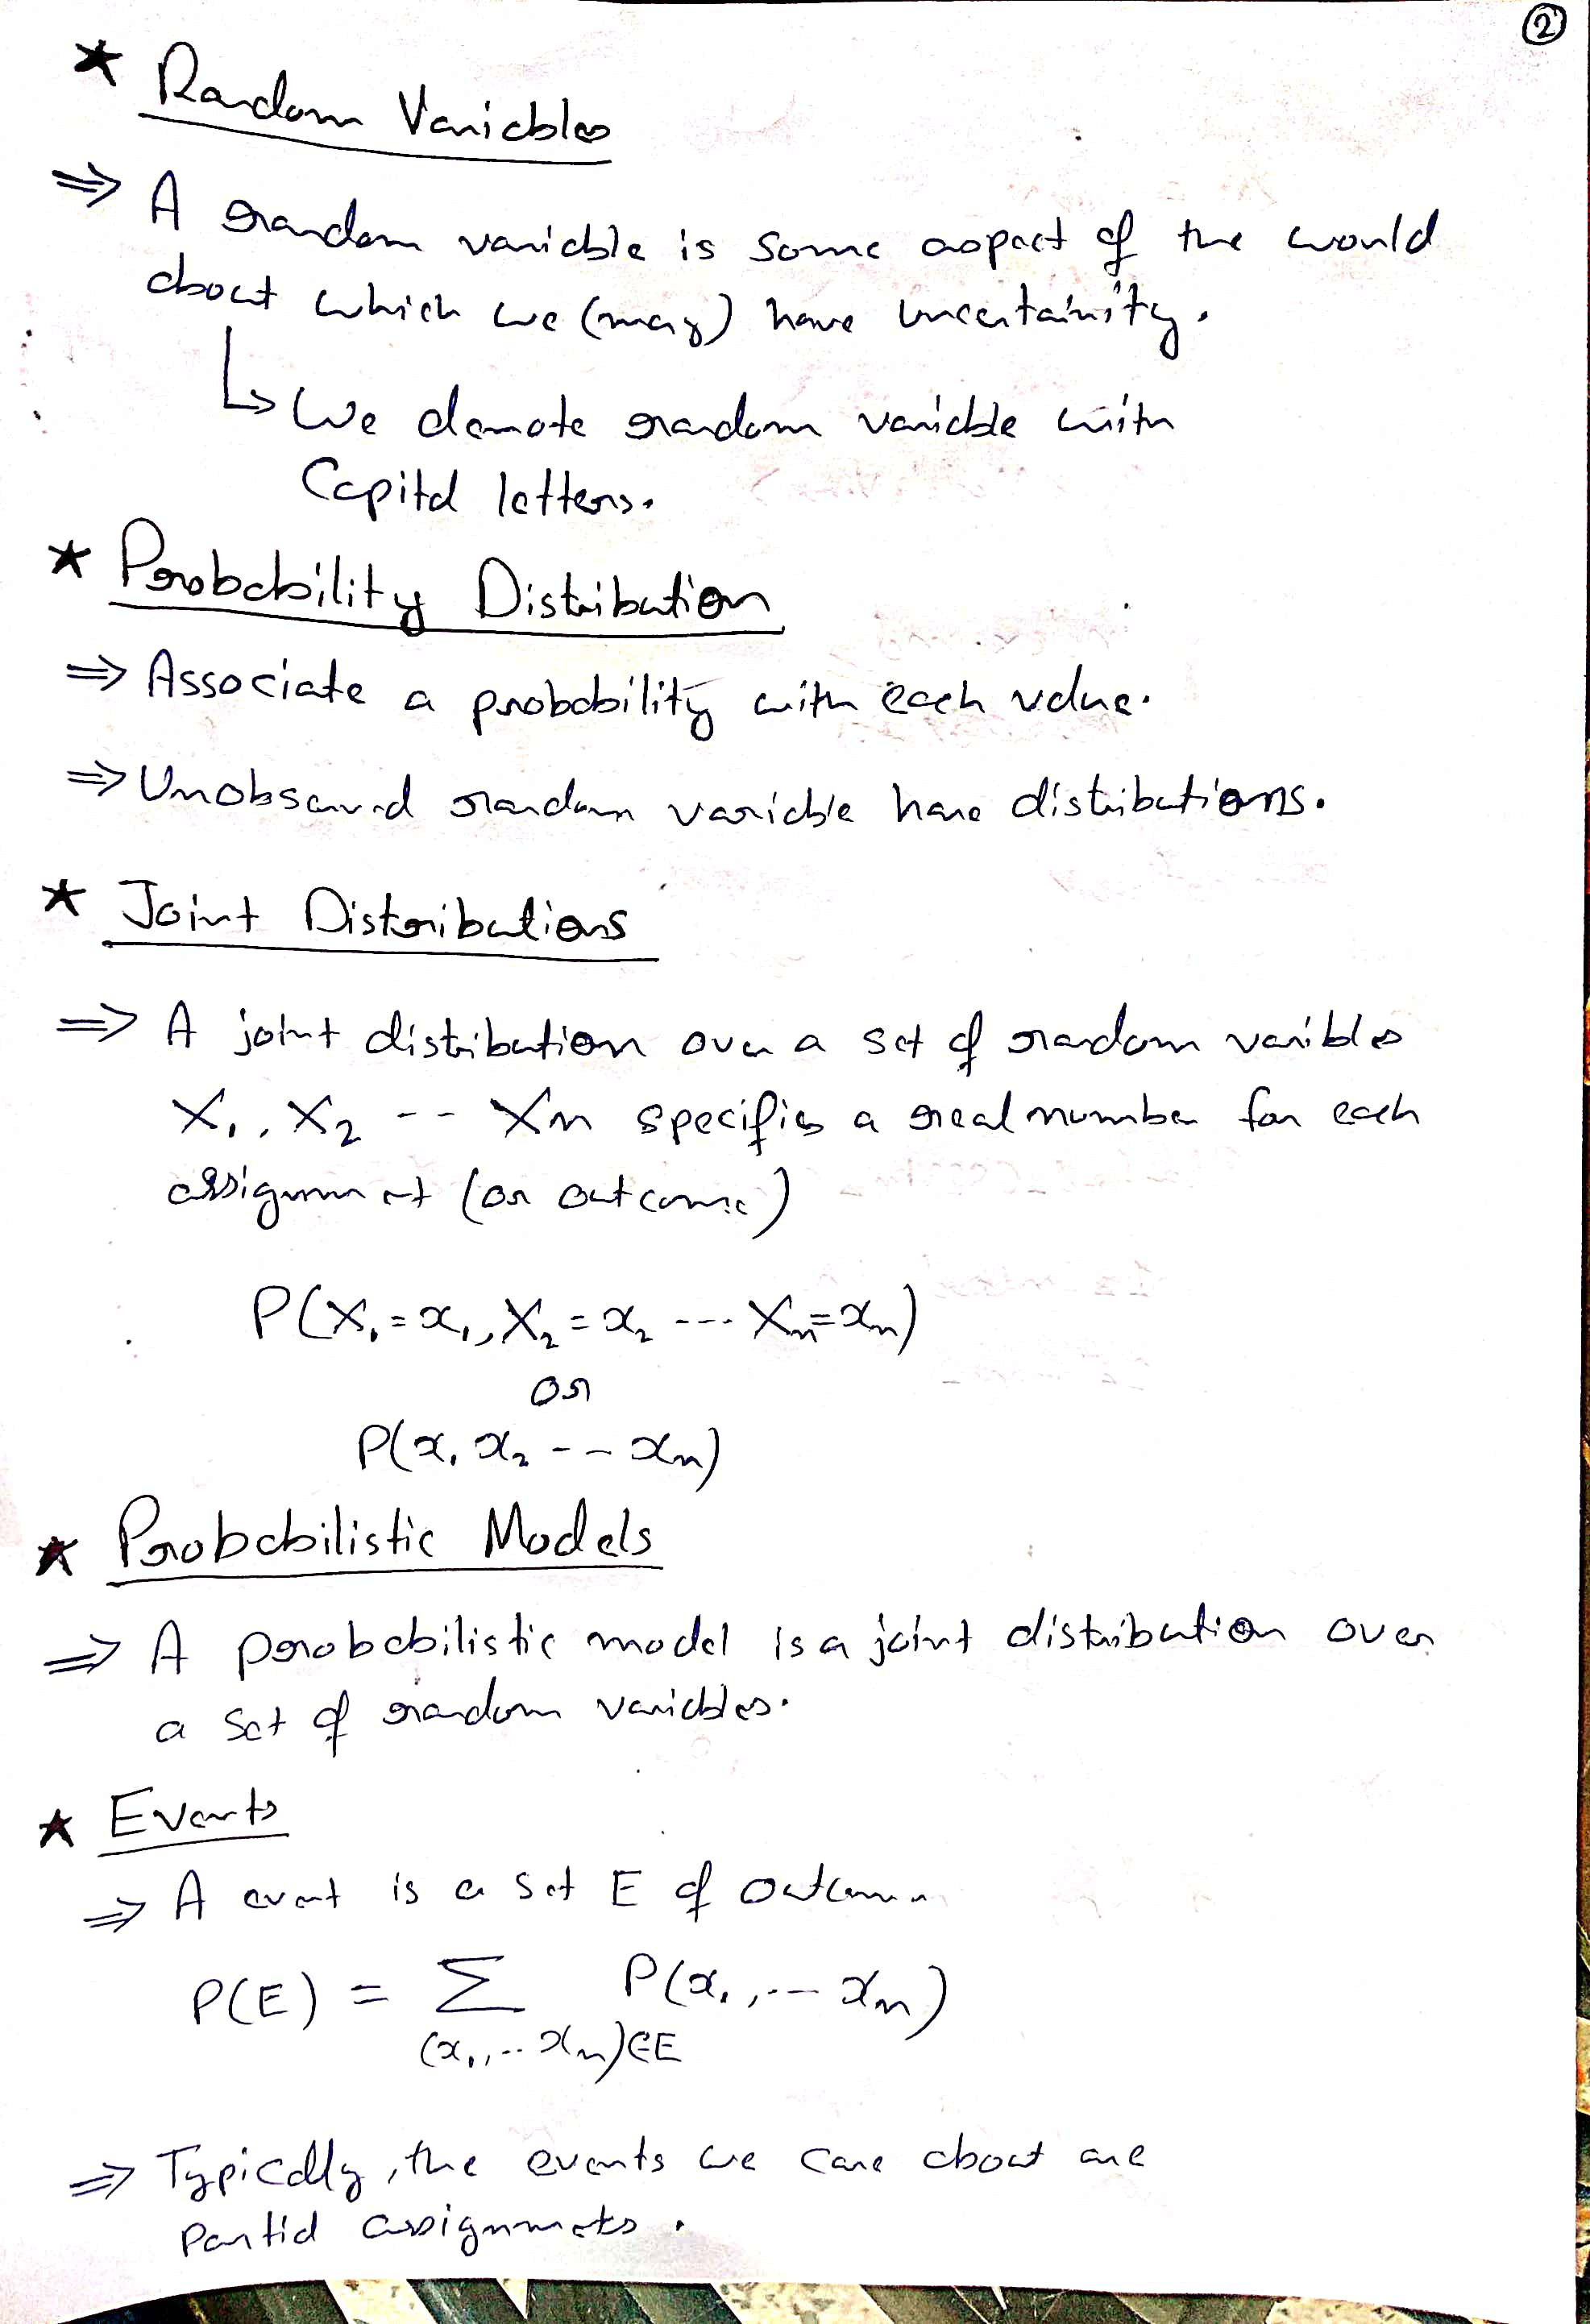 ②
* Random Variables
⇒ A random variable is some aspect of the would
about which we (may) have uncertainity.
↳ We denote random variable with
Capital letters.
* Probability Distribution
⇒ Associate a probability with each value.
⇒ Unobserved random variable have distributions.
* Joint Distributions
⇒ A joint distribution over a set of random varibles
X₁, X₂ -- Xn specifies a real number for each
assignment (or outcome)
P(X₁=x₁, X₂=x₂ --- Xn=xn)
or
P(x₁ x₂ -- xn)
* Probabilistic Models
⇒ A probabilistic model is a joint distribution over
a set of random variables.
* Events
⇒ A event is a set E of outcome
P(E) = Σ P(x₁,-- xn)
(x₁,.. xn)∈E
⇒ Typically, the events we care about are
partial assignments.